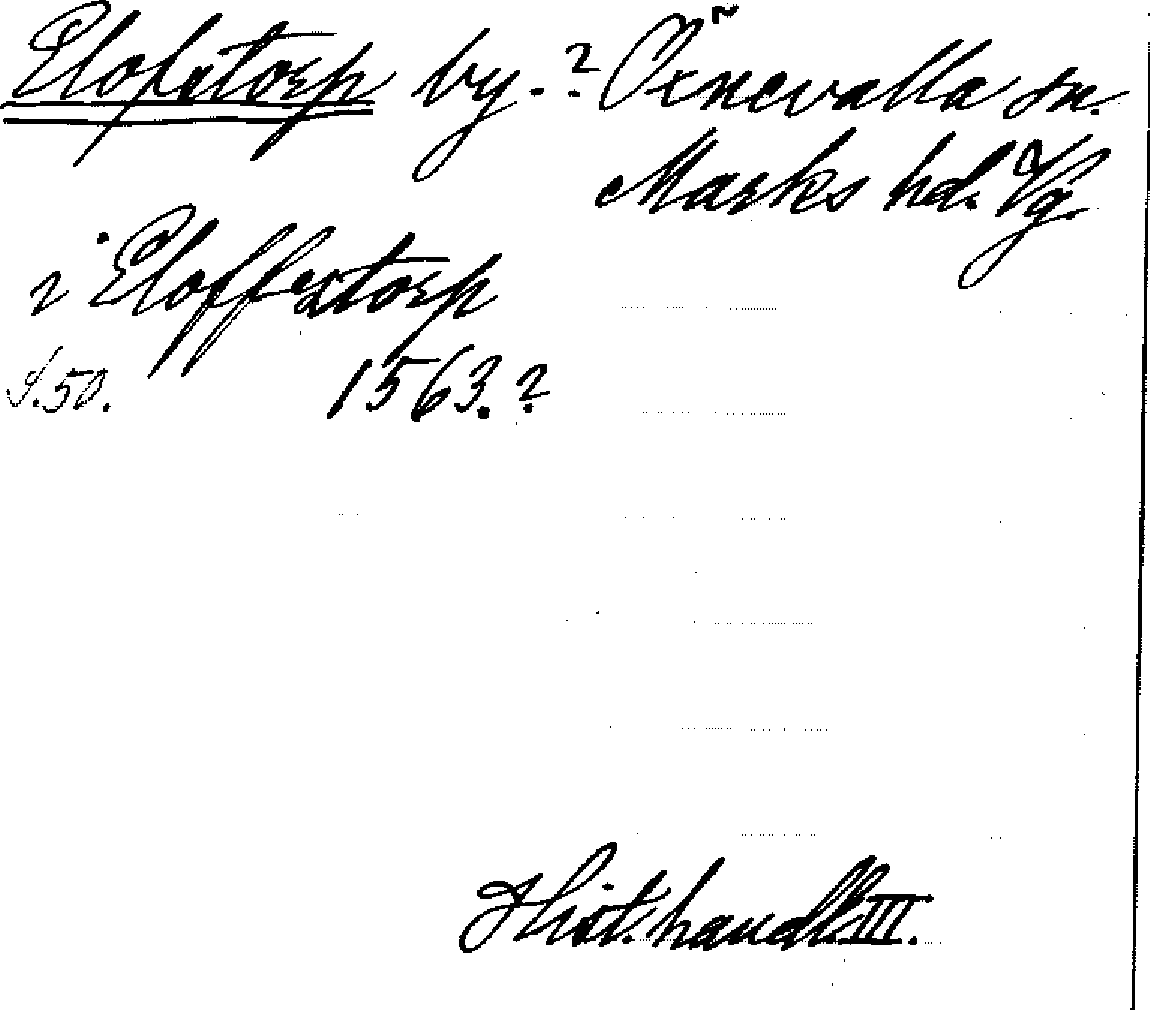 Elofstorp by. ? Öxnevalla sn.
Marks hd. Vg.
i Eloffzstorp
S. 50. 1563. ?
Hist. handl. III.